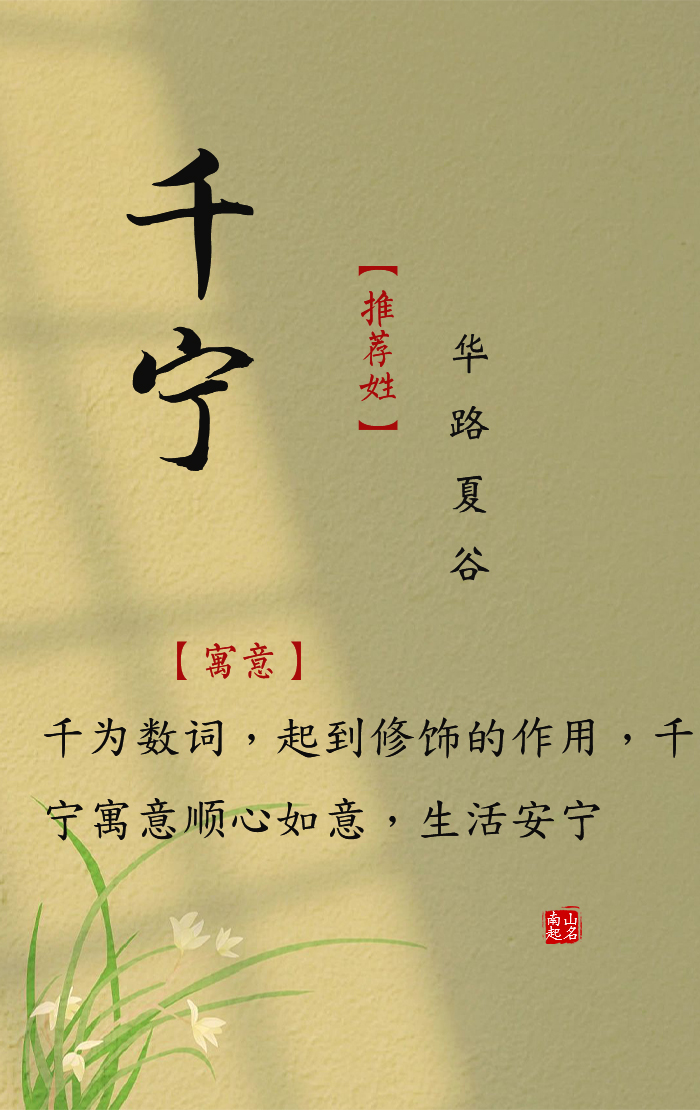 千宁
【推荐姓】
华路夏谷
【寓意】
千为数词，起到修饰的作用，千
宁寓意顺心如意，生活安宁
南山
起名